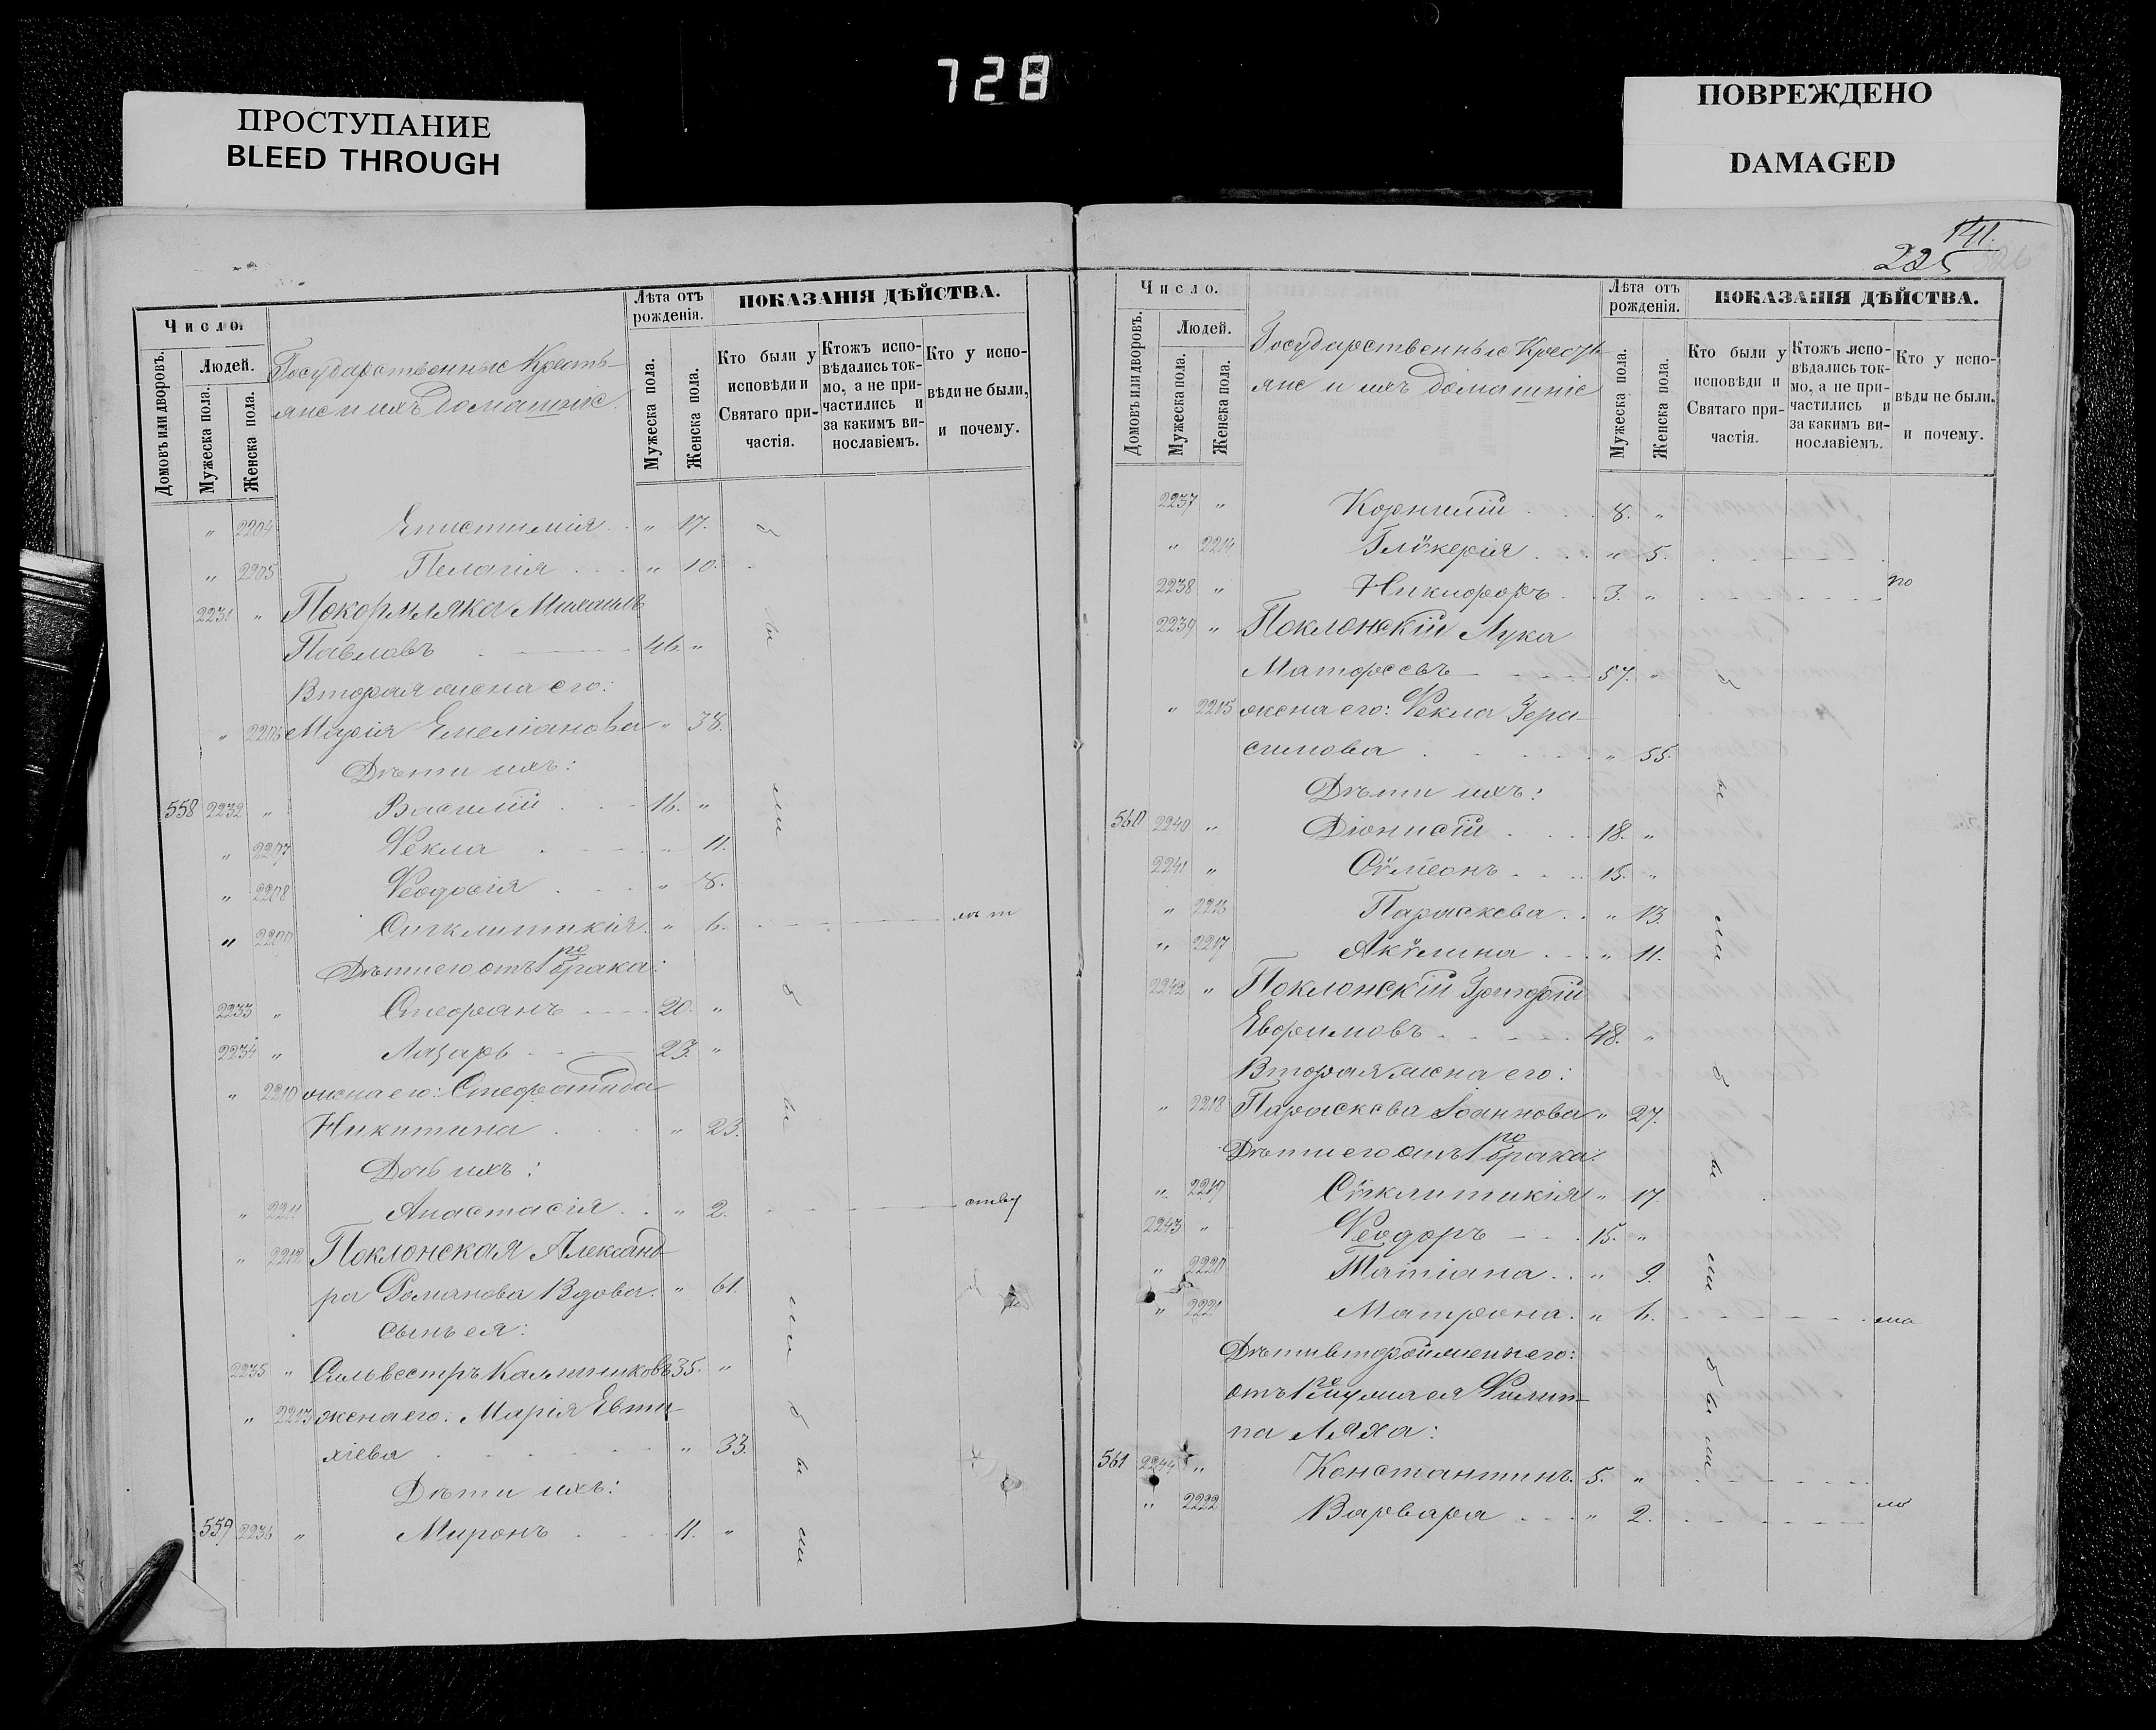 728
ПРОСТУПАНИЕ
BLEED THROUGH
ПОВРЕЖДЕНО
DAMAGED
Число.
Домовъ или дворовъ.
Людей.
Мужеска пола.
Женска пола.
Государственные Кресть-
яне и ихъ домашніе.
Лѣта отъ рожденія.
Мужеска пола.
Женска пола.
ПОКАЗАНІЯ ДѢЙСТВА.
Кто были у исповѣди и Святаго при-частія.
Ктожъ испо-вѣдались ток-мо, а не при-частились и за какимъ ви-нославіемъ.
Кто у испо-вѣди не были, и почему.
" 2204 Епистимія " 17.
" 2205 Пелагія " 10.
2231 " Покормляка Михаилъ
Павловъ 46. "
Вторая жена его:
" 2206 Марія Емеліанова " 38.
Дѣти ихъ:
558 2232 " Василій 16. "
" 2207 Ѳекла " 11.
" 2208 Ѳеодосія " 8.
" 2209 Сигклитикія " 6. лѣт
Дѣти его отъ 1го брака:
2233 " Стефанъ 20. "
2234 " Лазарь 23. "
" 2210 жена его: Стефанида
Никитина " 23.
Дочь ихъ:
" 2211 Анастасія " 2. ству
" 2212 Поклонская Александ-
ра Романова Вдова. " 61.
сынъ ея:
2235 " Сильвестръ Каллиниковъ 35. "
" 2213 жена его: Марія Евти-
хіева " 33.
Дѣти ихъ:
559 2236 " Миронъ 11. "
были
были
были
141.
225
Число.
Домовъ или дворовъ.
Людей.
Мужеска пола.
Женска пола.
Государственные Кресть-
яне и ихъ домашніе
Лѣта отъ рожденія.
Мужеска пола.
Женска пола.
ПОКАЗАНІЯ ДѢЙСТВА.
Кто были у исповѣди и Святаго при-частія.
Ктожъ испо-вѣдались ток-мо, а не при-частились и за какимъ ви-нославіемъ.
Кто у испо-вѣди не были, и почему.
2237 " Корнилій 8. "
" 2214 Глѵкерія " 5.
2238 " Никифоръ 3. " по
2239 " Поклонскій Лука
Матфеевъ 57. "
" 2215 жена его: Ѳекла Гера-
симова " 55.
Дѣти ихъ:
560 2240 " Діонисій 18. "
2241 " Сѵмеонъ 15. "
" 2216 Параскева " 13.
" 2217 Акѵлина " 11.
2242 " Поклонскій Григорій
Евфимовъ 48. "
Вторая жена его:
" 2218 Параскева Іоаннова " 27.
Дѣти его отъ 1го брака:
" 2219 Сѵгклитикія " 17.
2243 " Ѳеодоръ 15. "
" 2220 Татіана " 9.
" 2221 Матрона " 6. ма
Дѣти второй жены его:
отъ 1го мужа ея Филип-
па Ляха:
561 2244 " Константинъ 5. "
" 2222 Варвара " 2. ло
были
были
были